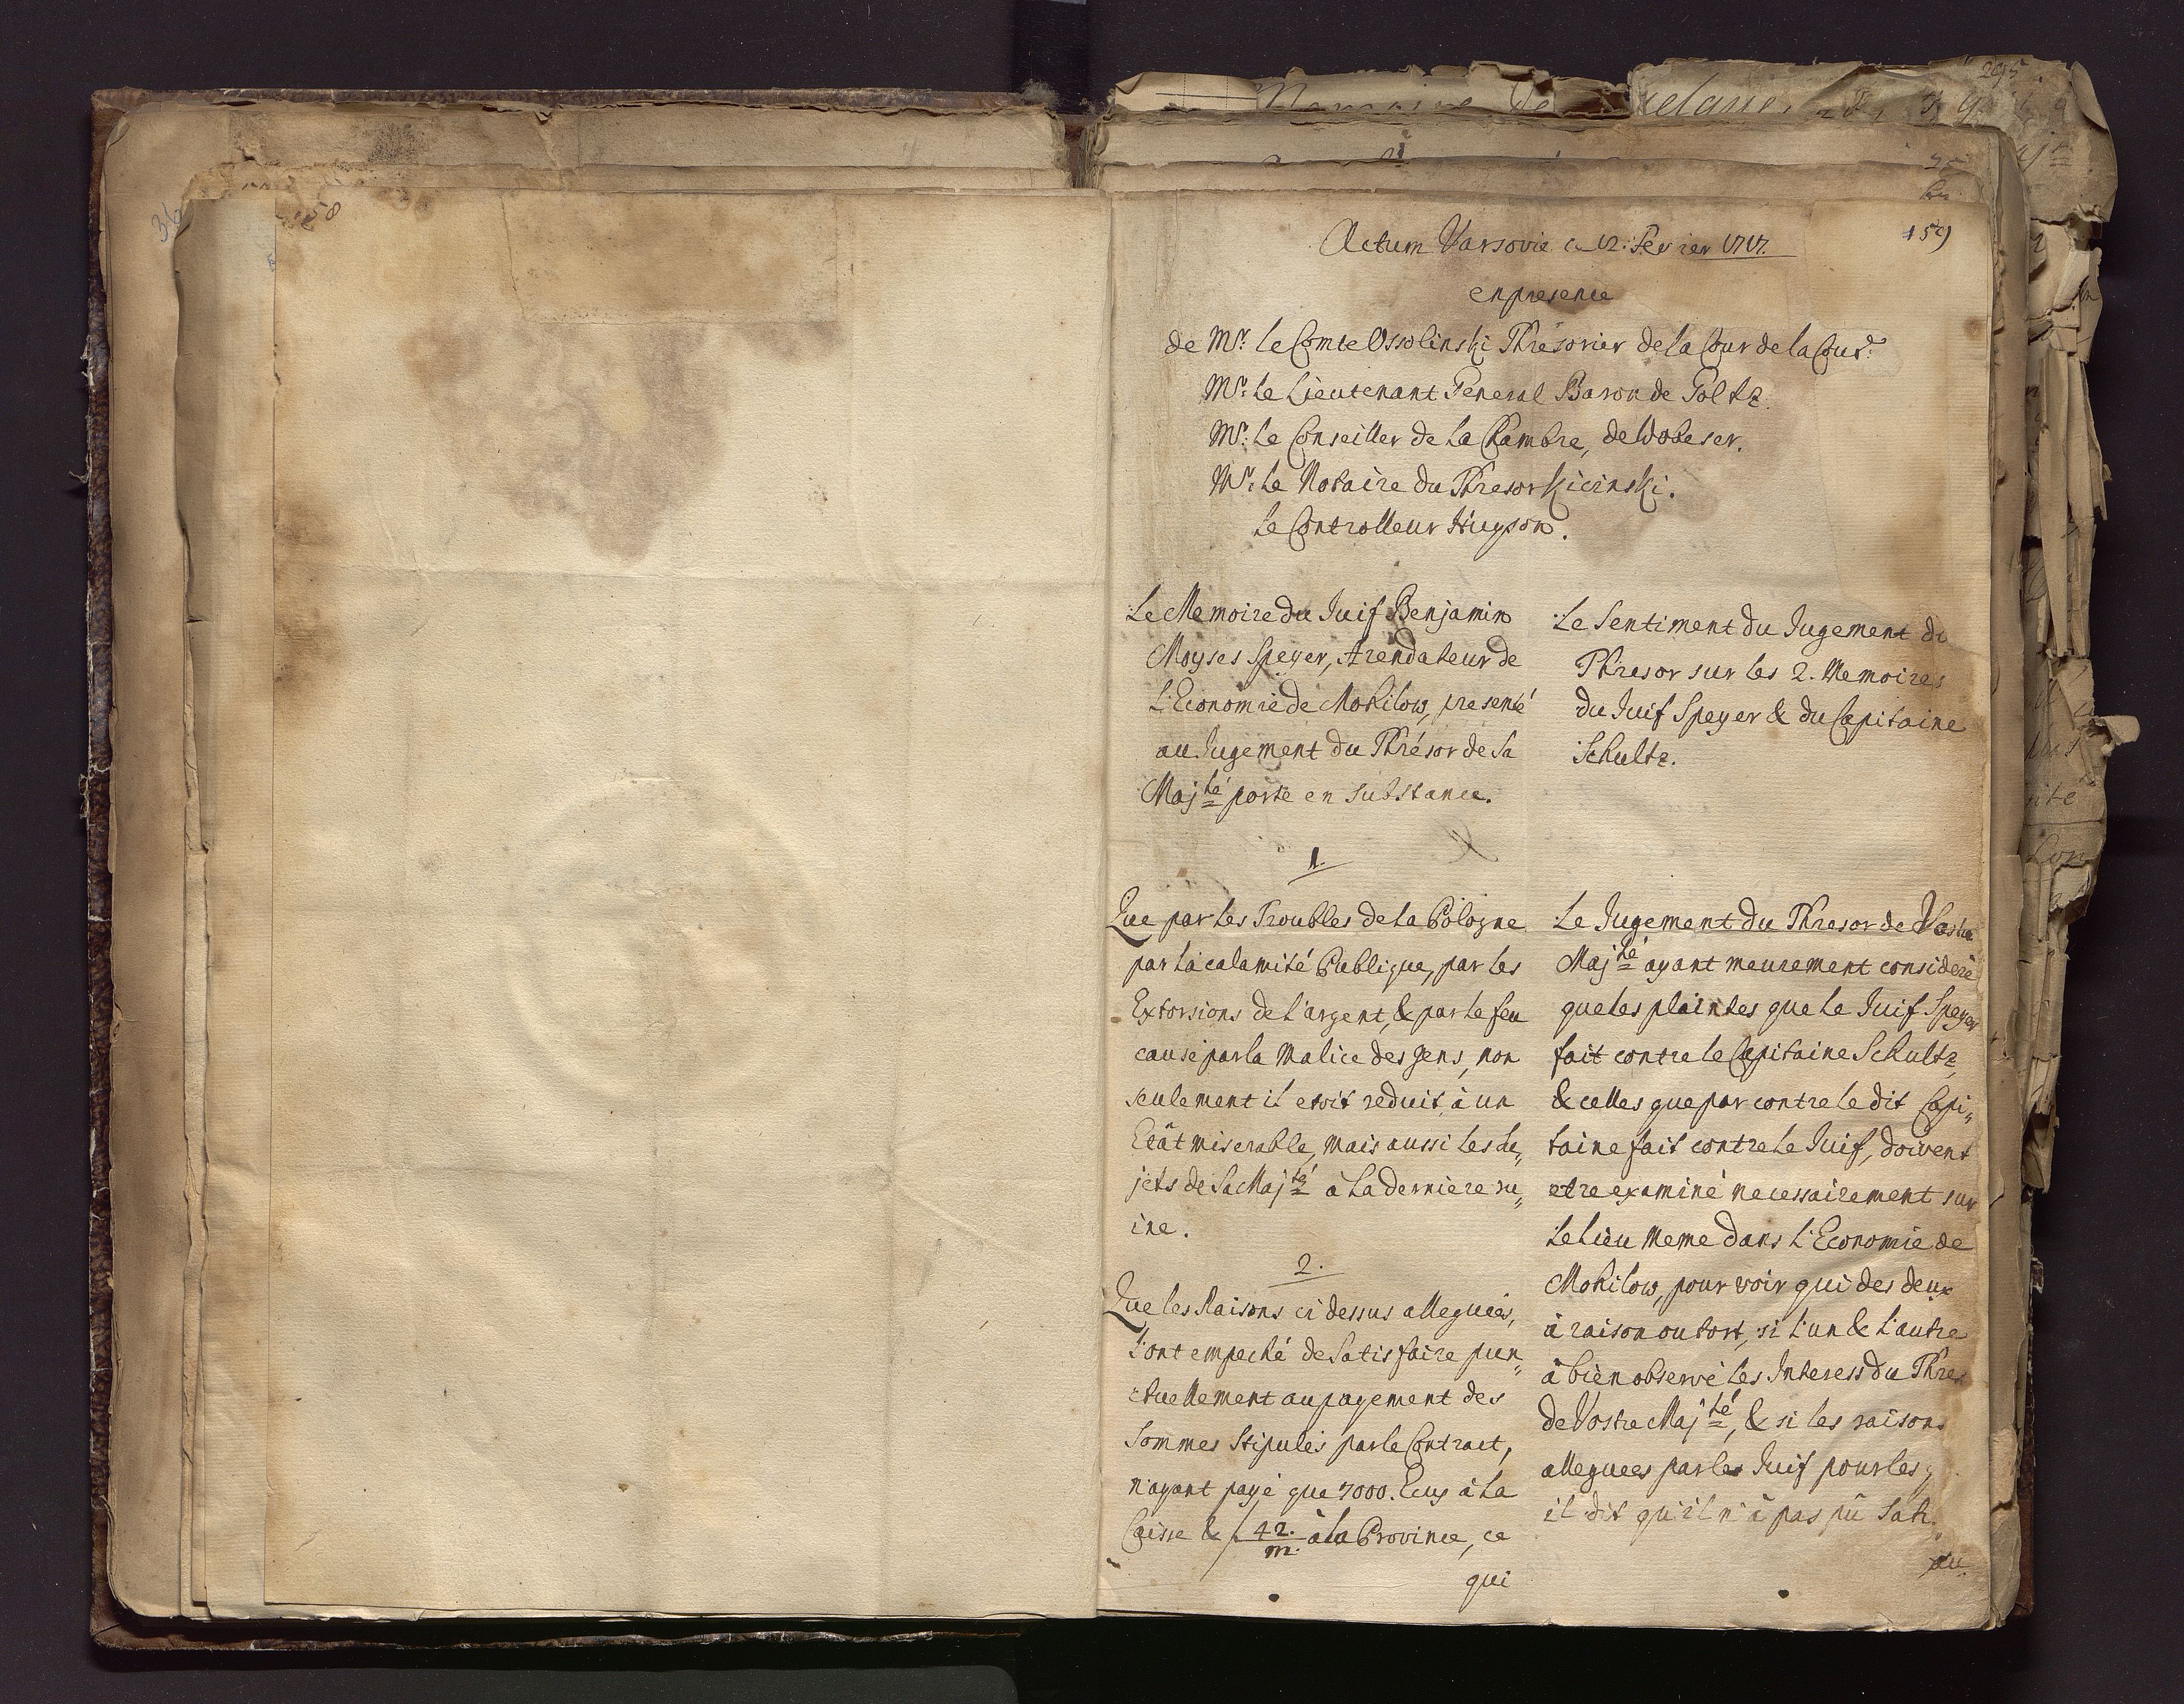 158
159
Actum Varsovie ce 12. Fevrier 1717.
en presence
de Mr. le Comte Ossolinski Thrésorier de la Cour de la Cour:
Mr. le Lieutenant General Baron de Goltz.
Mr. le Conseiller de la Chambre, de Wobeser.
Mr. le Notaire du Thresor Kicinski.
Le Controlleur Hugson.
Le Memoire du Juif Benjamin
Moyses Speyer, Arendateur de
L'Economie de Mohilow, presenté
au Jugement du Thrésor de Sa
Majté porte en substance.
1.
Que par les Troubles de la Pologne
par la calamité Publique, par les
Extorsions de l'argent, & par le feu
causé par la Malice des gens, non
seulement il etoit reduit à un
Etât miserable, mais aussi les su„
jets de Sa Majté à la derniere ru„
ine.
2.
Que les Raisons ci dessus alleguées,
l'ont empeché de satisfaire pun„
ctuellement au payement des
Sommes stipulés par le Contract,
n'ayant payé que 7000. Ecus à la
Caisse & f 42./m. à la Province, ce
qui
Le Sentiment du Jugement du
Thresor sur les 2. Memoires
du Juif Speyer & du Capitaine
Schultz.
Le Jugement du Thresor de Vostre
Majté ayant meurement consideré
que les plaintes que le Juif Speyer
fait contre le Capitaine Schultz,
& celles que par contre le dit Capi„
taine fait contre le Juif, doivent
etre examiné necessairement sur
le lieu meme dans l'Economie de
Mohilow, pour voir qui des deux
à raison ou tort, si l'un & l'autre
à bien observé les Interess du Thres
de Vostre Majté, & si les raisons
alleguees par les Juif pour les
il dit qu'il n'à pas pû Satis„